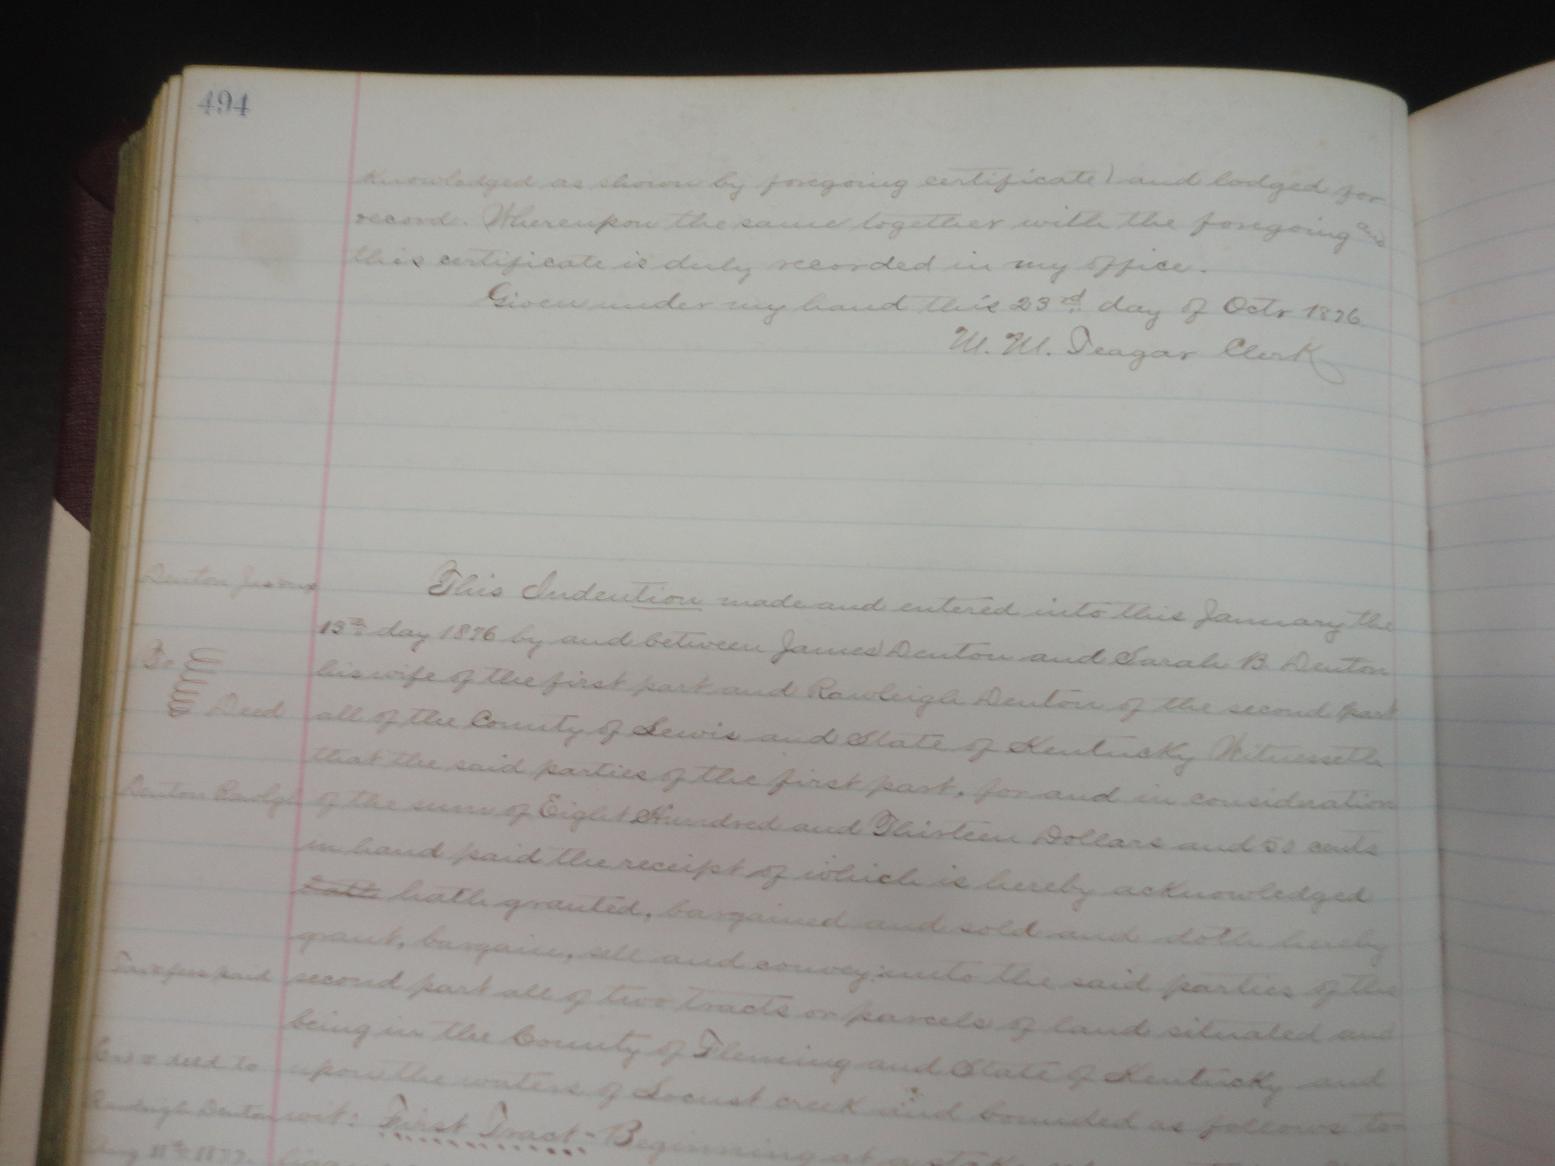 494
knowledged as shown by foregoing certificate) and lodged for
record. Whereupon the same together with the foregoing and
this certificate is duly recorded in my office.
Given under my hand this 23rd day of Octr 1876
W. W. Teagar Clerk
Denton Jas &ux
To
Deed
Denton Rawlgh
Tax & fees paid
Exd & deed to
Rawleigh Denton
Aug 11th 1877.
This Indention made and entered into this January the
13th day 1876 by and between James Denton and Sarah B. Denton
his wife of the first part and Rawleigh Denton of the second part
all of the County of Lewis and State of Kentucky Witnesseth
that the said parties of the first part, for and in consideration
of the sum of Eight Hundred and Thirteen Dollars and 50 cents
in hand paid the receipt of which is hereby acknowledged
hath granted, bargained and sold and doth hereby
grant, bargain, sell and convey unto the said parties of the
second part all of two tracts or parcels of land situated and
being in the County of Fleming and State of Kentucky and
upon the waters of Locust creek and bounded as follows to
wit: First Tract - Beginning at a stake